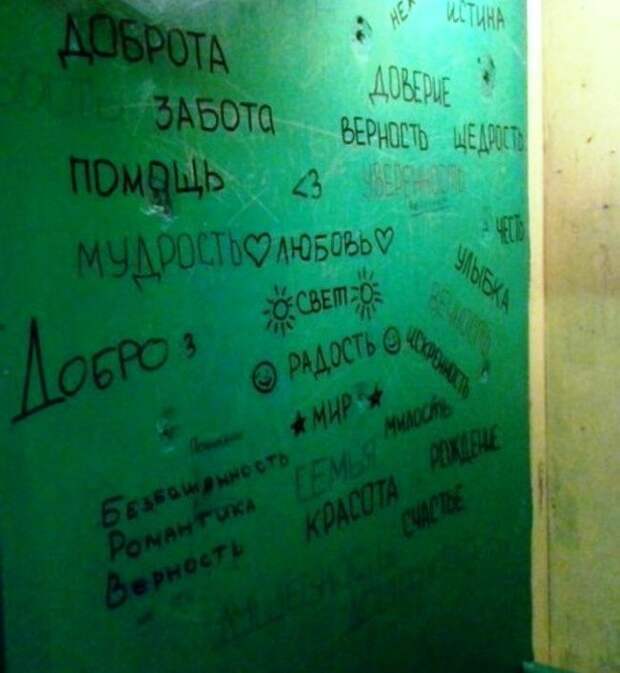 ИСТИНА
ДОБРОТА
ДОВЕРИЕ
ЗАБОТА
ВЕРНОСТЬ ЩЕДРОСТЬ
ПОМОЩЬ <3 УВЕРЕННОСТЬ
ЧЕСТЬ
МУДРОСТЬ♡ЛЮБОВЬ♡
УЛЫБКА
☼СВЕТ☼
ДОБРО 3
☺ РАДОСТЬ ☺ ИСКРЕННОСТЬ
★МИР★
МИЛОСТЬ
СЕМЬЯ
РОЖДЕНИЕ
БЕЗБАШЕННОСТЬ
РОМАНТИКА
КРАСОТА
СЧАСТЬЕ
ВЕРНОСТЬ